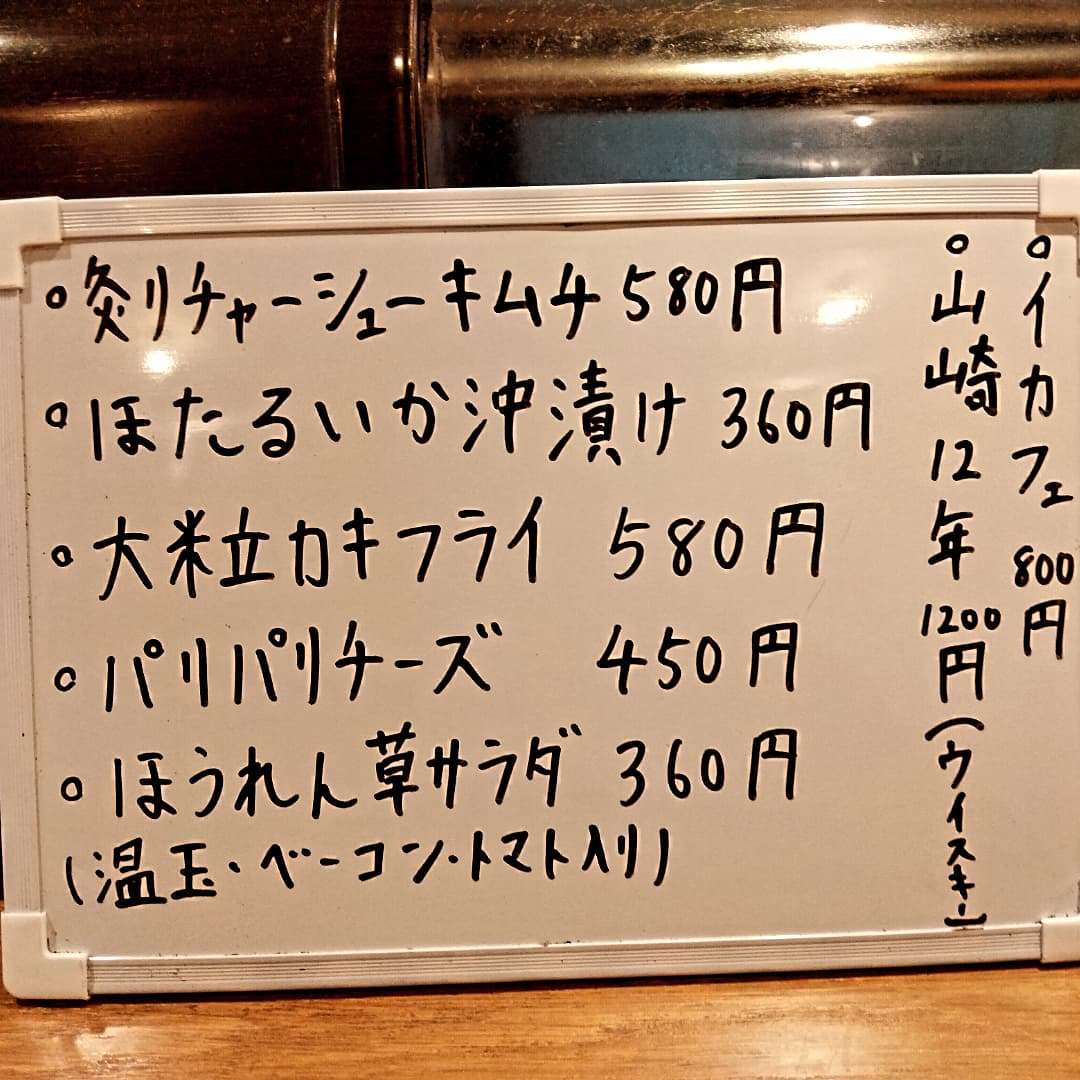 炙りチャーシューキムチ 580円
ほたるいか沖漬け 360円
大粒カキフライ 580円
パリパリチーズ 450円
ほうれん草サラダ 360円
(温玉・ベーコン・トマト入り)
イカフェ 800円
山崎12年 1200円(ウイスキー)